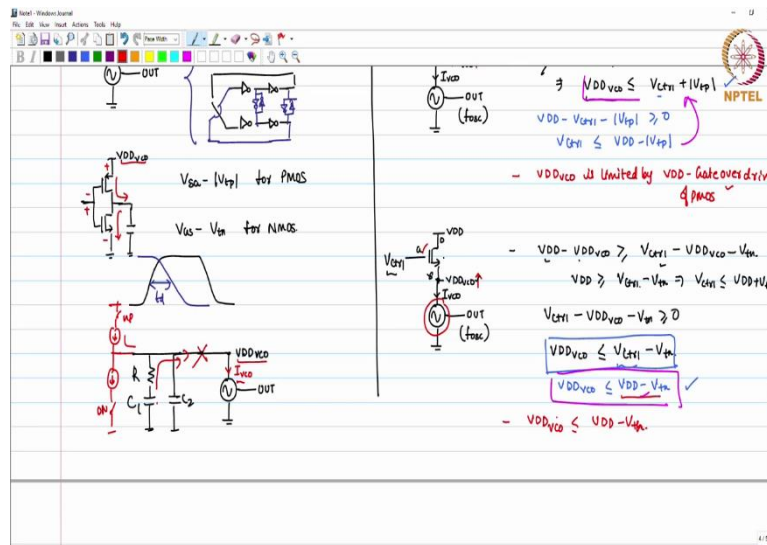 Note1 - Windows Journal
File Edit View Insert Actions Tools Help
Page Width
B I
NPTEL
OUT
VDDvco
VSG - |Vtp| for PMOS
VGS - Vtn for NMOS.
td
UP
R
C1
C2
DN
VDDvco
Ivco
OUT
Ivco
OUT
(fosc)
⇒ VDDvco ≤ Vctrl + |Vtp| ✓
VDD - Vctrl - |Vtp| ≥ 0
Vctrl ≤ VDD - |Vtp|
- VDDvco is limited by VDD - Gate overdriv
of PMOS
VDD
Vctrl
VDDvco ↑
Ivco
OUT
(fosc)
- VDD - VDDvco ≥ Vctrl - VDDvco - Vtn
VDD ≥ Vctrl - Vtn ⇒ Vctrl ≤ VDD + Vt
Vctrl - VDDvco - Vtn ≥ 0
VDDvco ≤ Vctrl - Vtn
VDDvco ≤ VDD - Vtn ✓
- VDDvco ≤ VDD - Vtn.